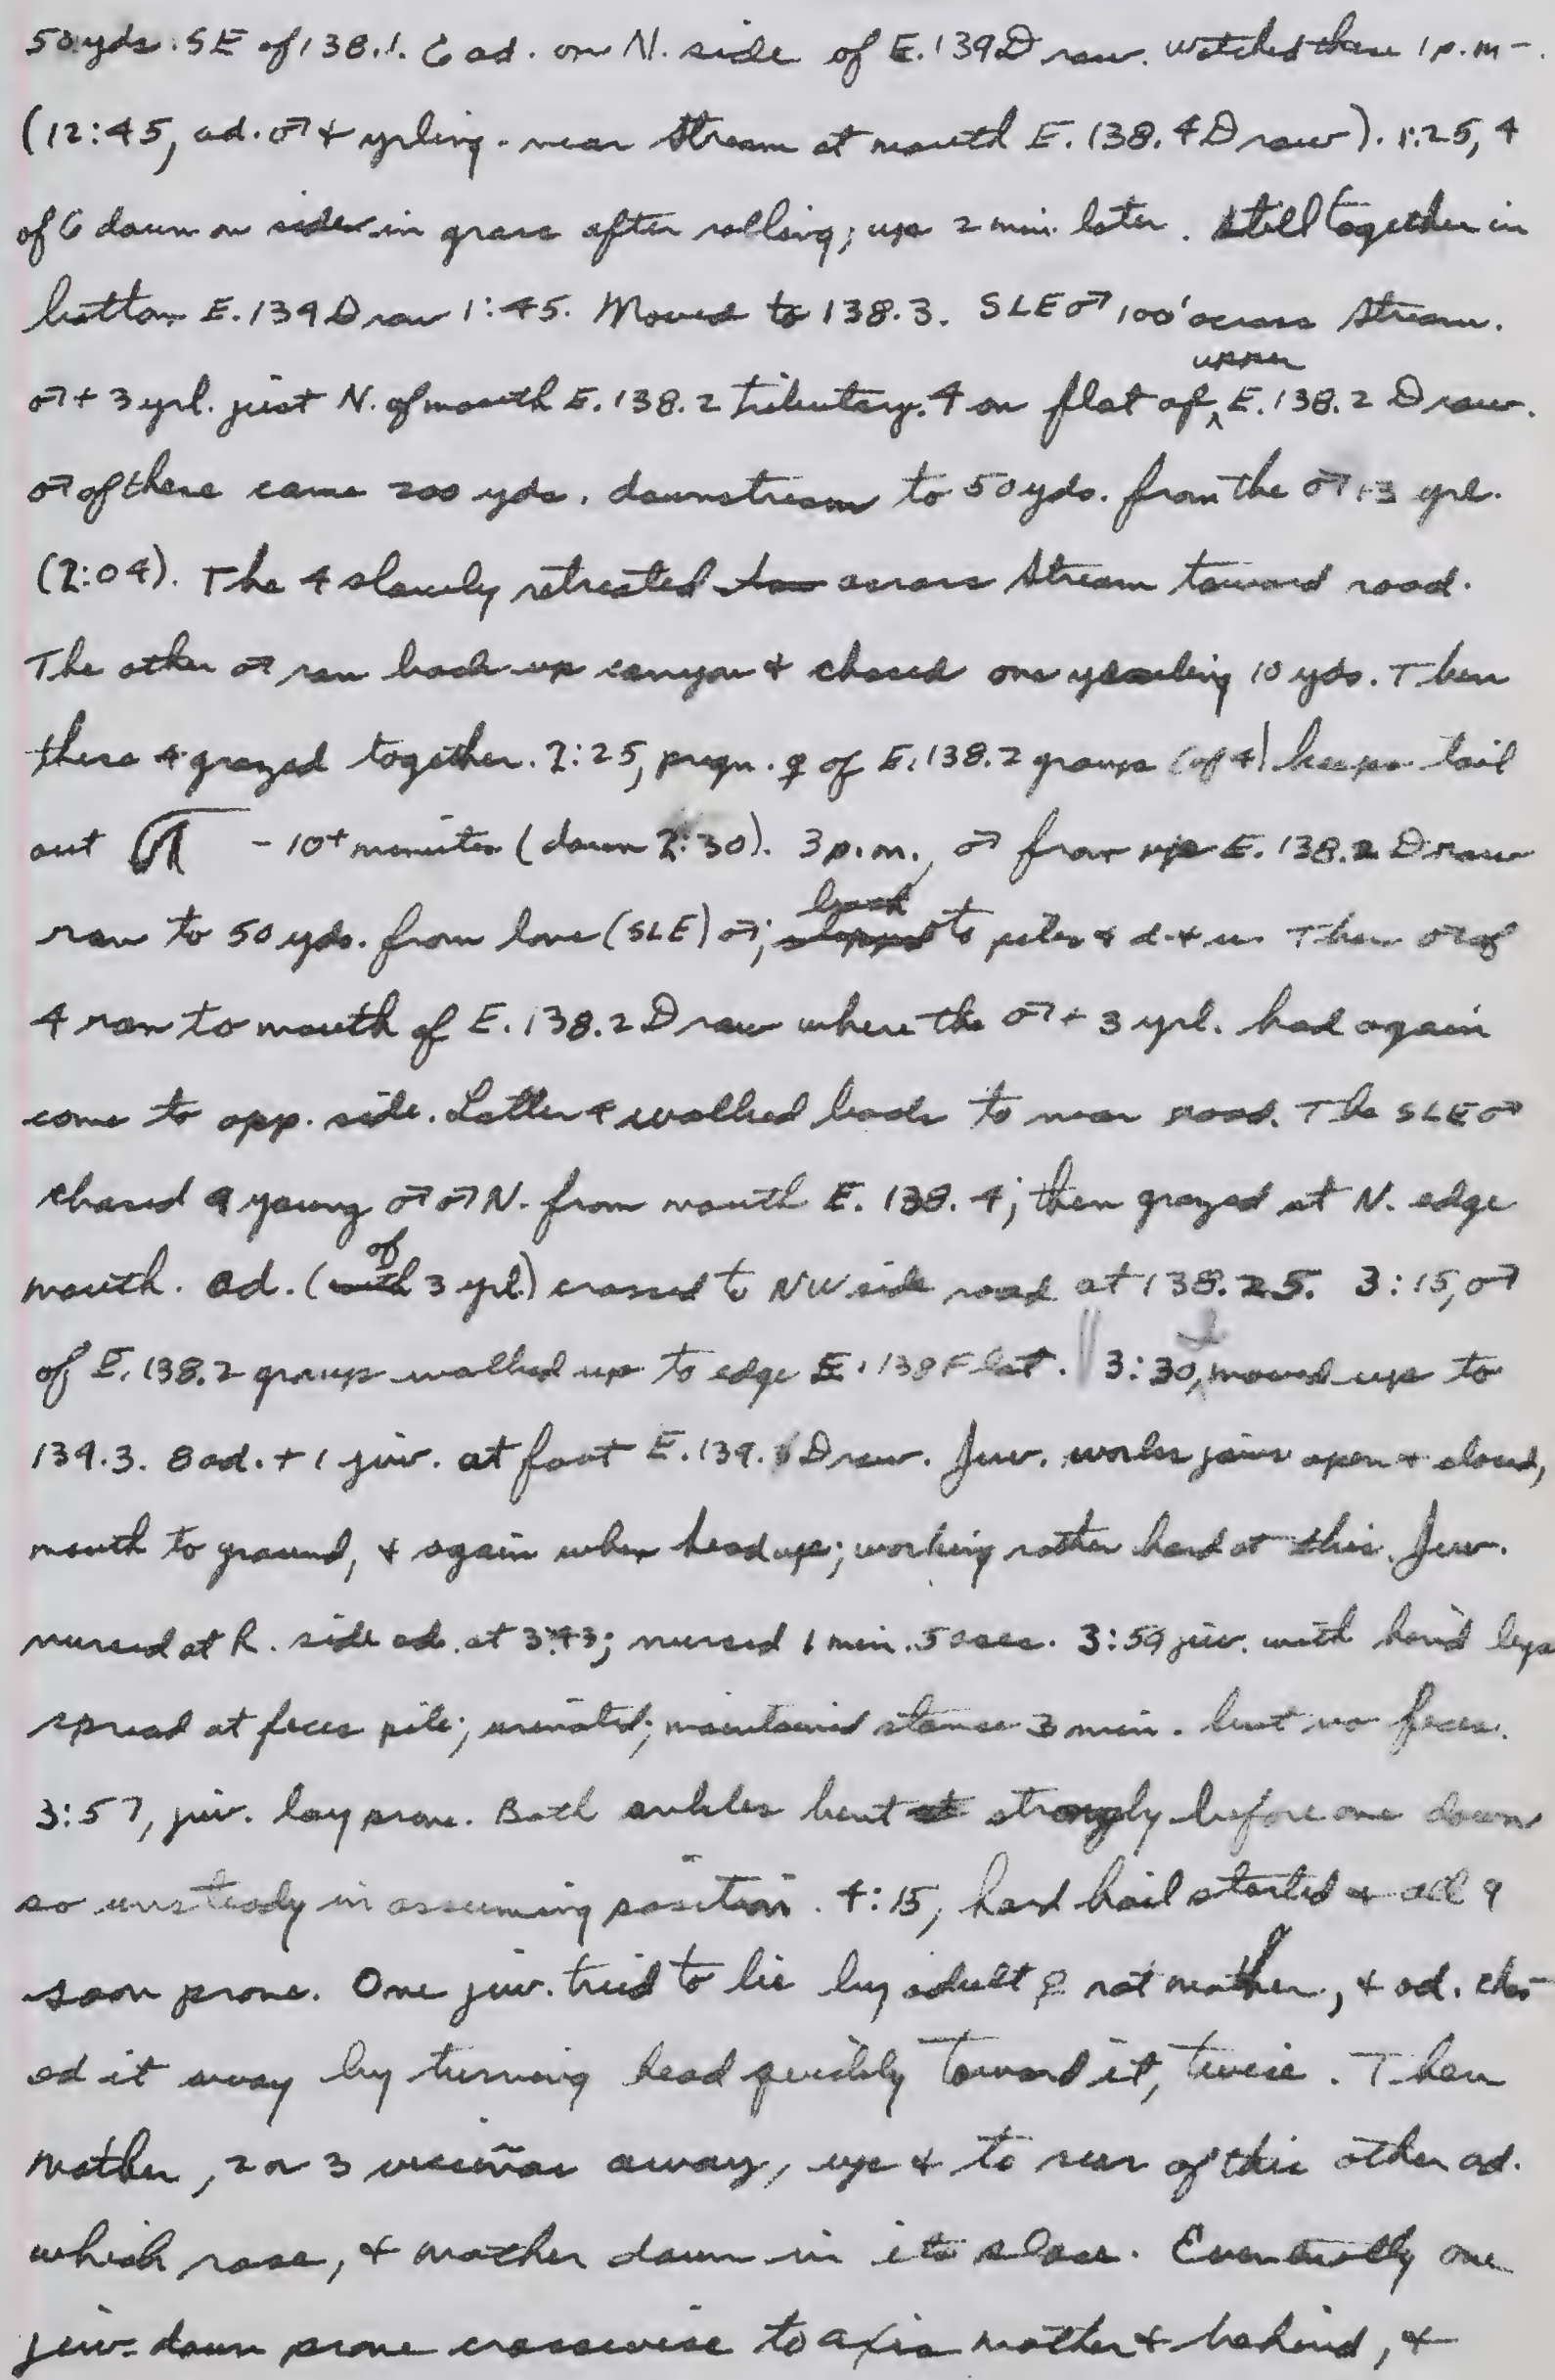 50 yds. SE of 138.1. 6 ad. on N. side of E. 139 Draw. Watched these 1 p.m-.
(12:45, ad. ♂ + yrling. near stream at mouth E. 138.4 Draw). 1:25, 4
of 6 down on sides in grass after rolling; up 2 min. later. Still together in
bottom E. 139 Draw 1:45. Moved to 138.3. SLE ♂ 100' across stream.
♂ + 3 yrl. just N. of mouth E. 138.2 tributary. 4 on flat of upper E. 138.2 Draw.
♂ of these came 200 yds. downstream to 50 yds. from the ♂ + 3 yrl.
(2:04). The 4 slowly retreated across stream toward road.
The other ♂ ran back up canyon & chased one yearling 10 yds. Then
these 4 grazed together. 2:25, pregn. ♀ of E. 138.2 group (of 4) keeps tail
out - 10+ minutes (down 2:30). 3 p.m., ♂ from up E. 138.2 Draw
ran to 50 yds. from lone (SLE) ♂; back to piles & d. & u. Then ♂ of
4 ran to mouth of E. 138.2 Draw where the ♂ + 3 yrl. had again
come to opp. side. Latter 4 walked back to near road. The SLE ♂
chased 9 young ♂♂ N. from mouth E. 138.4; then grazed at N. edge
mouth. Ad. (of 3 yrl.) crossed to NW side road at 138.25. 3:15, ♂
of E. 138.2 group walked up to edge E. 138 Flat. || 3:30, moved up to
139.3. 8 ad. + 1 juv. at foot E. 139. Draw. Juv. works jaws open & closed,
mouth to ground, & again when head up; working rather hard at this. Juv.
nursed at R. side ad. at 3:43; nursed 1 min. 50 sec. 3:54 juv. with hind legs
spread at feces pile; urinated; maintained stance 3 min. but no feces.
3:57, juv. lay prone. Both ankles bent strongly before one down
so unsteady in assuming position. 4:15, hard hail started & all 9
soon prone. One juv. tried to lie by adult ♀ not mother, & ad. chas-
ed it away by turning head quickly toward it, twice. Then
mother, 2 or 3 vicuñas away, up & to rear of this other ad.
which rose, & mother down in its place. Eventually one
juv. down prone crosswise to axis mother & behind, &